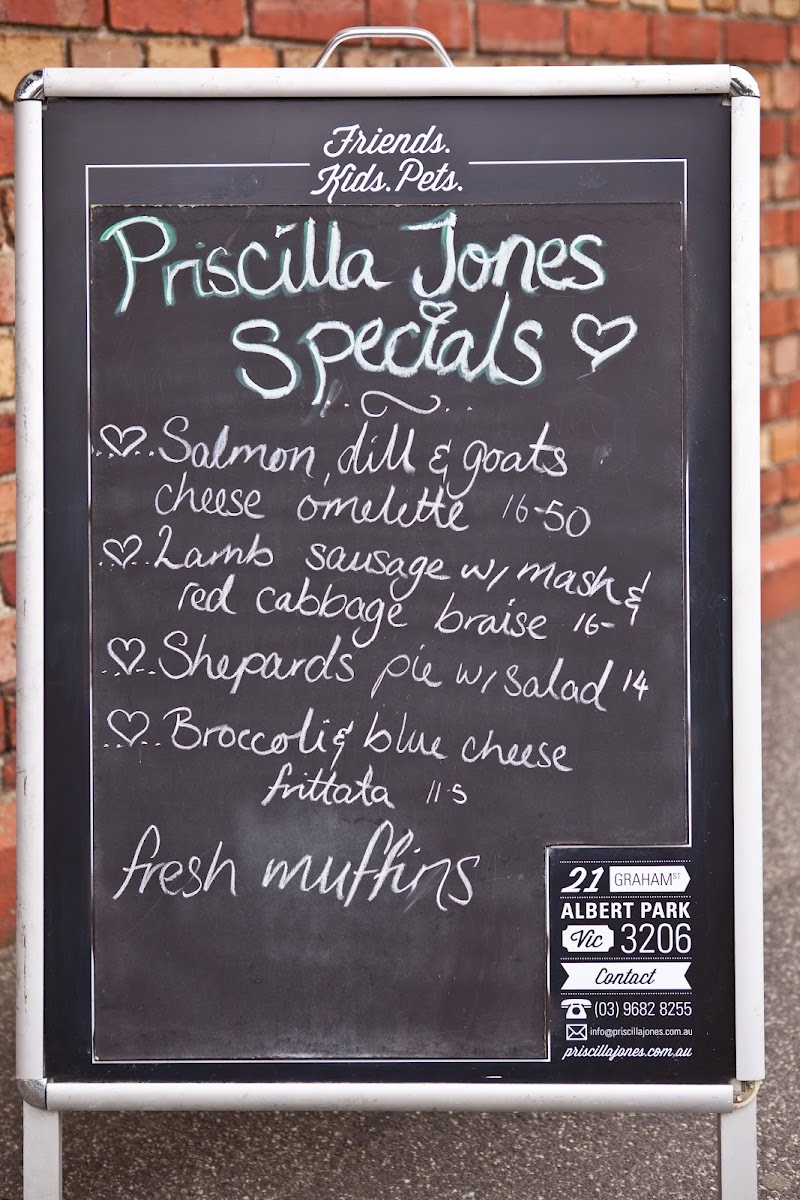 Friends.
Kids. Pets.
Priscilla Jones
Specials
Salmon, dill & goats
cheese omelette 16-50
Lamb sausage w/ mash &
red cabbage braise 16-
Shepards pie w/ salad 14
Broccoli & blue cheese
frittata 11-5
fresh muffins
21 GRAHAM ST
ALBERT PARK
Vic 3206
Contact
(03) 9682 8255
info@priscillajones.com.au
priscillajones.com.au